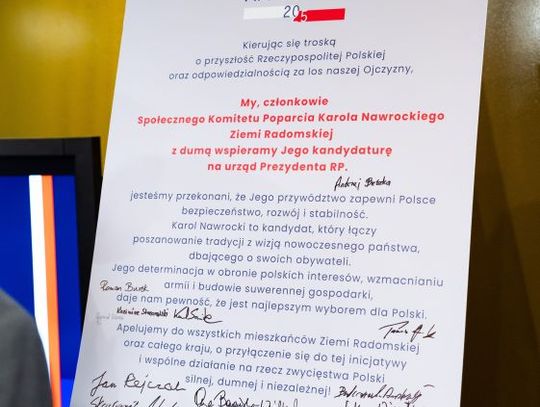 2025
Kierując się troską
o przyszłość Rzeczypospolitej Polskiej
oraz odpowiedzialnością za los naszej Ojczyzny,
My, członkowie
Społecznego Komitetu Poparcia Karola Nawrockiego
Ziemi Radomskiej
z dumą wspieramy Jego kandydaturę
na urząd Prezydenta RP.
Andrzej
jesteśmy przekonani, że Jego przywództwo zapewni Polsce
bezpieczeństwo, rozwój i stabilność.
Karol Nawrocki to kandydat, który łączy
poszanowanie tradycji z wizją nowoczesnego państwa,
dbającego o swoich obywateli.
Jego determinacja w obronie polskich interesów, wzmacnianiu
armii i budowie suwerennej gospodarki,
daje nam pewność, że jest najlepszym wyborem dla Polski.
Apelujemy do wszystkich mieszkańców Ziemi Radomskiej
oraz całego kraju, o przyłączenie się do tej inicjatywy
i wspólne działanie na rzecz zwycięstwa Polski
silnej, dumnej i niezależnej!
Jan Rejczak